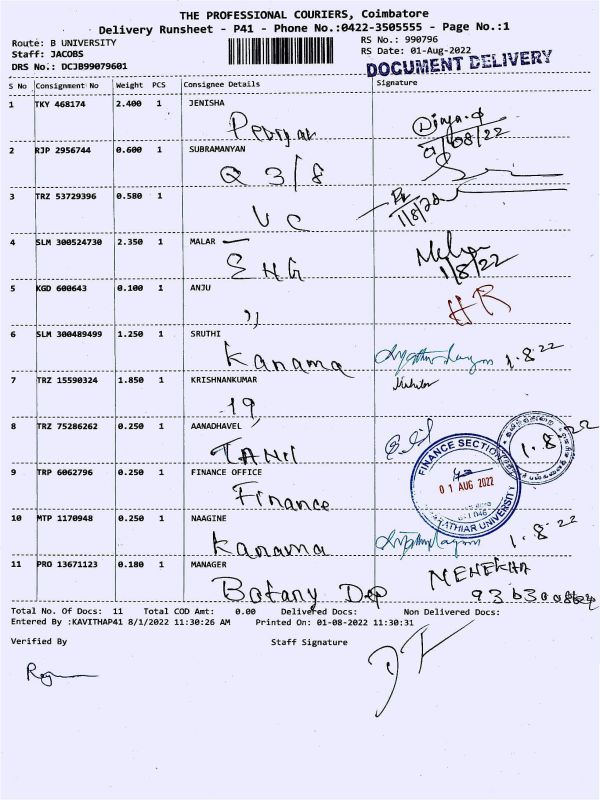 THE PROFESSIONAL COURIERS, Coimbatore
Delivery Runsheet - P41 - Phone No.:0422-3505555 - Page No.:1
Route: B UNIVERSITY
Staff: JACOBS
DRS No.: DCJB99079601
RS No.: 990796
RS Date: 01-Aug-2022
DOCUMENT DELIVERY
S No Consignment No Weight PCS Consignee Details Signature
1 TKY 468174 2.400 1 JENISHA
Periyar Divya.
01/08/22
2 RJP 2956744 0.600 1 SUBRAMANYAN
Q 3/8
3 TRZ 53729396 0.580 1
VC 1/8/22
4 SLM 300524730 2.350 1 MALAR
ENG 1/8/22
5 KGD 600643 0.100 1 ANJU
,, HR
6 SLM 300489499 1.250 1 SRUTHI
Kanama 1.8.22
7 TRZ 15590324 1.850 1 KRISHNANKUMAR
19
8 TRZ 75286262 0.250 1 AANADHAVEL
TAMIL 1.8.22
9 TRP 6062796 0.250 1 FINANCE OFFICE
Finance
FINANCE SECTION
01 AUG 2022
641 046
UNIVERSITY
10 MTP 1170948 0.250 1 NAAGINE
Kanama 1.8.22
11 PRO 13671123 0.180 1 MANAGER
Botany Dep MENEKHA
Total No. Of Docs: 11 Total COD Amt: 0.00 Delivered Docs: Non Delivered Docs:
Entered By :KAVITHAP41 8/1/2022 11:30:26 AM Printed On: 01-08-2022 11:30:31
Verified By Staff Signature